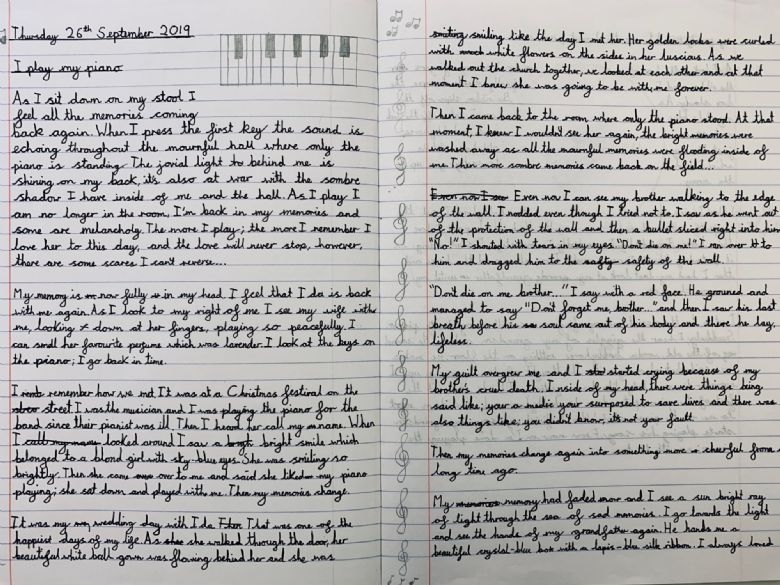 Thursday 26th September 2019
I play my piano
As I sit down on my stool I
feel all the memories coming
back again. When I press the first key the sound is
echoing throughout the mournful hall where only the
piano is standing. The jovial light to behind me is
shining on my back, it's also at war with the sombre
shadow I have inside of me and the hall. As I play I
am no longer in the room, I'm back in my memories and
some are melancholy. The more I play; the more I remember I
love her to this day, and the love will never stop, however,
there are some scares I can't reverse...
My memory is now fully in my head. I feel that I da is back
with me again. As I look to my right of me I see my wife with
me, looking down at her fingers, playing so peacefully. I
can smell her favourite perfume which was lavender. I look at the keys on
the piano; I go back in time.
I remember how we met. It was at a Christmas festival on the
street I was the musician and I was playing the piano for the
band since their pianist was ill. Then I heard her call my name. When
I looked around I saw a bright smile which
belonged to a blond girl with sky-blue eyes. She was smiling so
brightly. Then she came over to me and said she liked my piano
playing; she sat down and played with me. Then my memories change.
It was my wedding day with I da. That was one of the
happiest days of my life. As she walked through the door, her
beautiful white ball gown was flowing behind her and she was
smiling smiling like the day I met her. Her golden locks were curled
with white flowers on the sides in her luscious. As we
walked out the church together, we looked at each other and at that
moment I knew she was going to be with me forever.
Then I came back to the room where only the piano stood. At that
moment, I knew I wouldn't see her again, the bright memories were
washed away as all the mournful memories were flooding inside of
me. Then more sombre memories came back on the field...
Even now I see Even now I can see my brother walking to the edge
of the wall. I nodded even though I tried not to. I saw as he went out
of the protection of the wall and then a bullet sliced right into him
"No!" I shouted with tears in my eyes. "Don't die on me!" I ran over to
him and dragged him to the safty safety of the wall.
"Don't die on me brother..." I say with a red face. He groaned and
managed to say "Don't forget me, brother..." and then I saw his last
breath before his soul came out of his body and there he lay,
lifeless.
My guilt overgrew me and I started crying because of my
brother's cruel death. Inside of my head, there were things being
said like; your a medic your surposed to save lives and there was
also things like; you didn't know, it's not your fault.
Then my memories change again into something more cheerful from a
long time ago.
My memories memory had faded now and I see a sun bright ray
of light through the sea of sad memories. I go towards the light
and see the hands of my grandfather again. He hands me a
beautiful crystal-blue box with a lapis-blue silk ribbon. I always loved